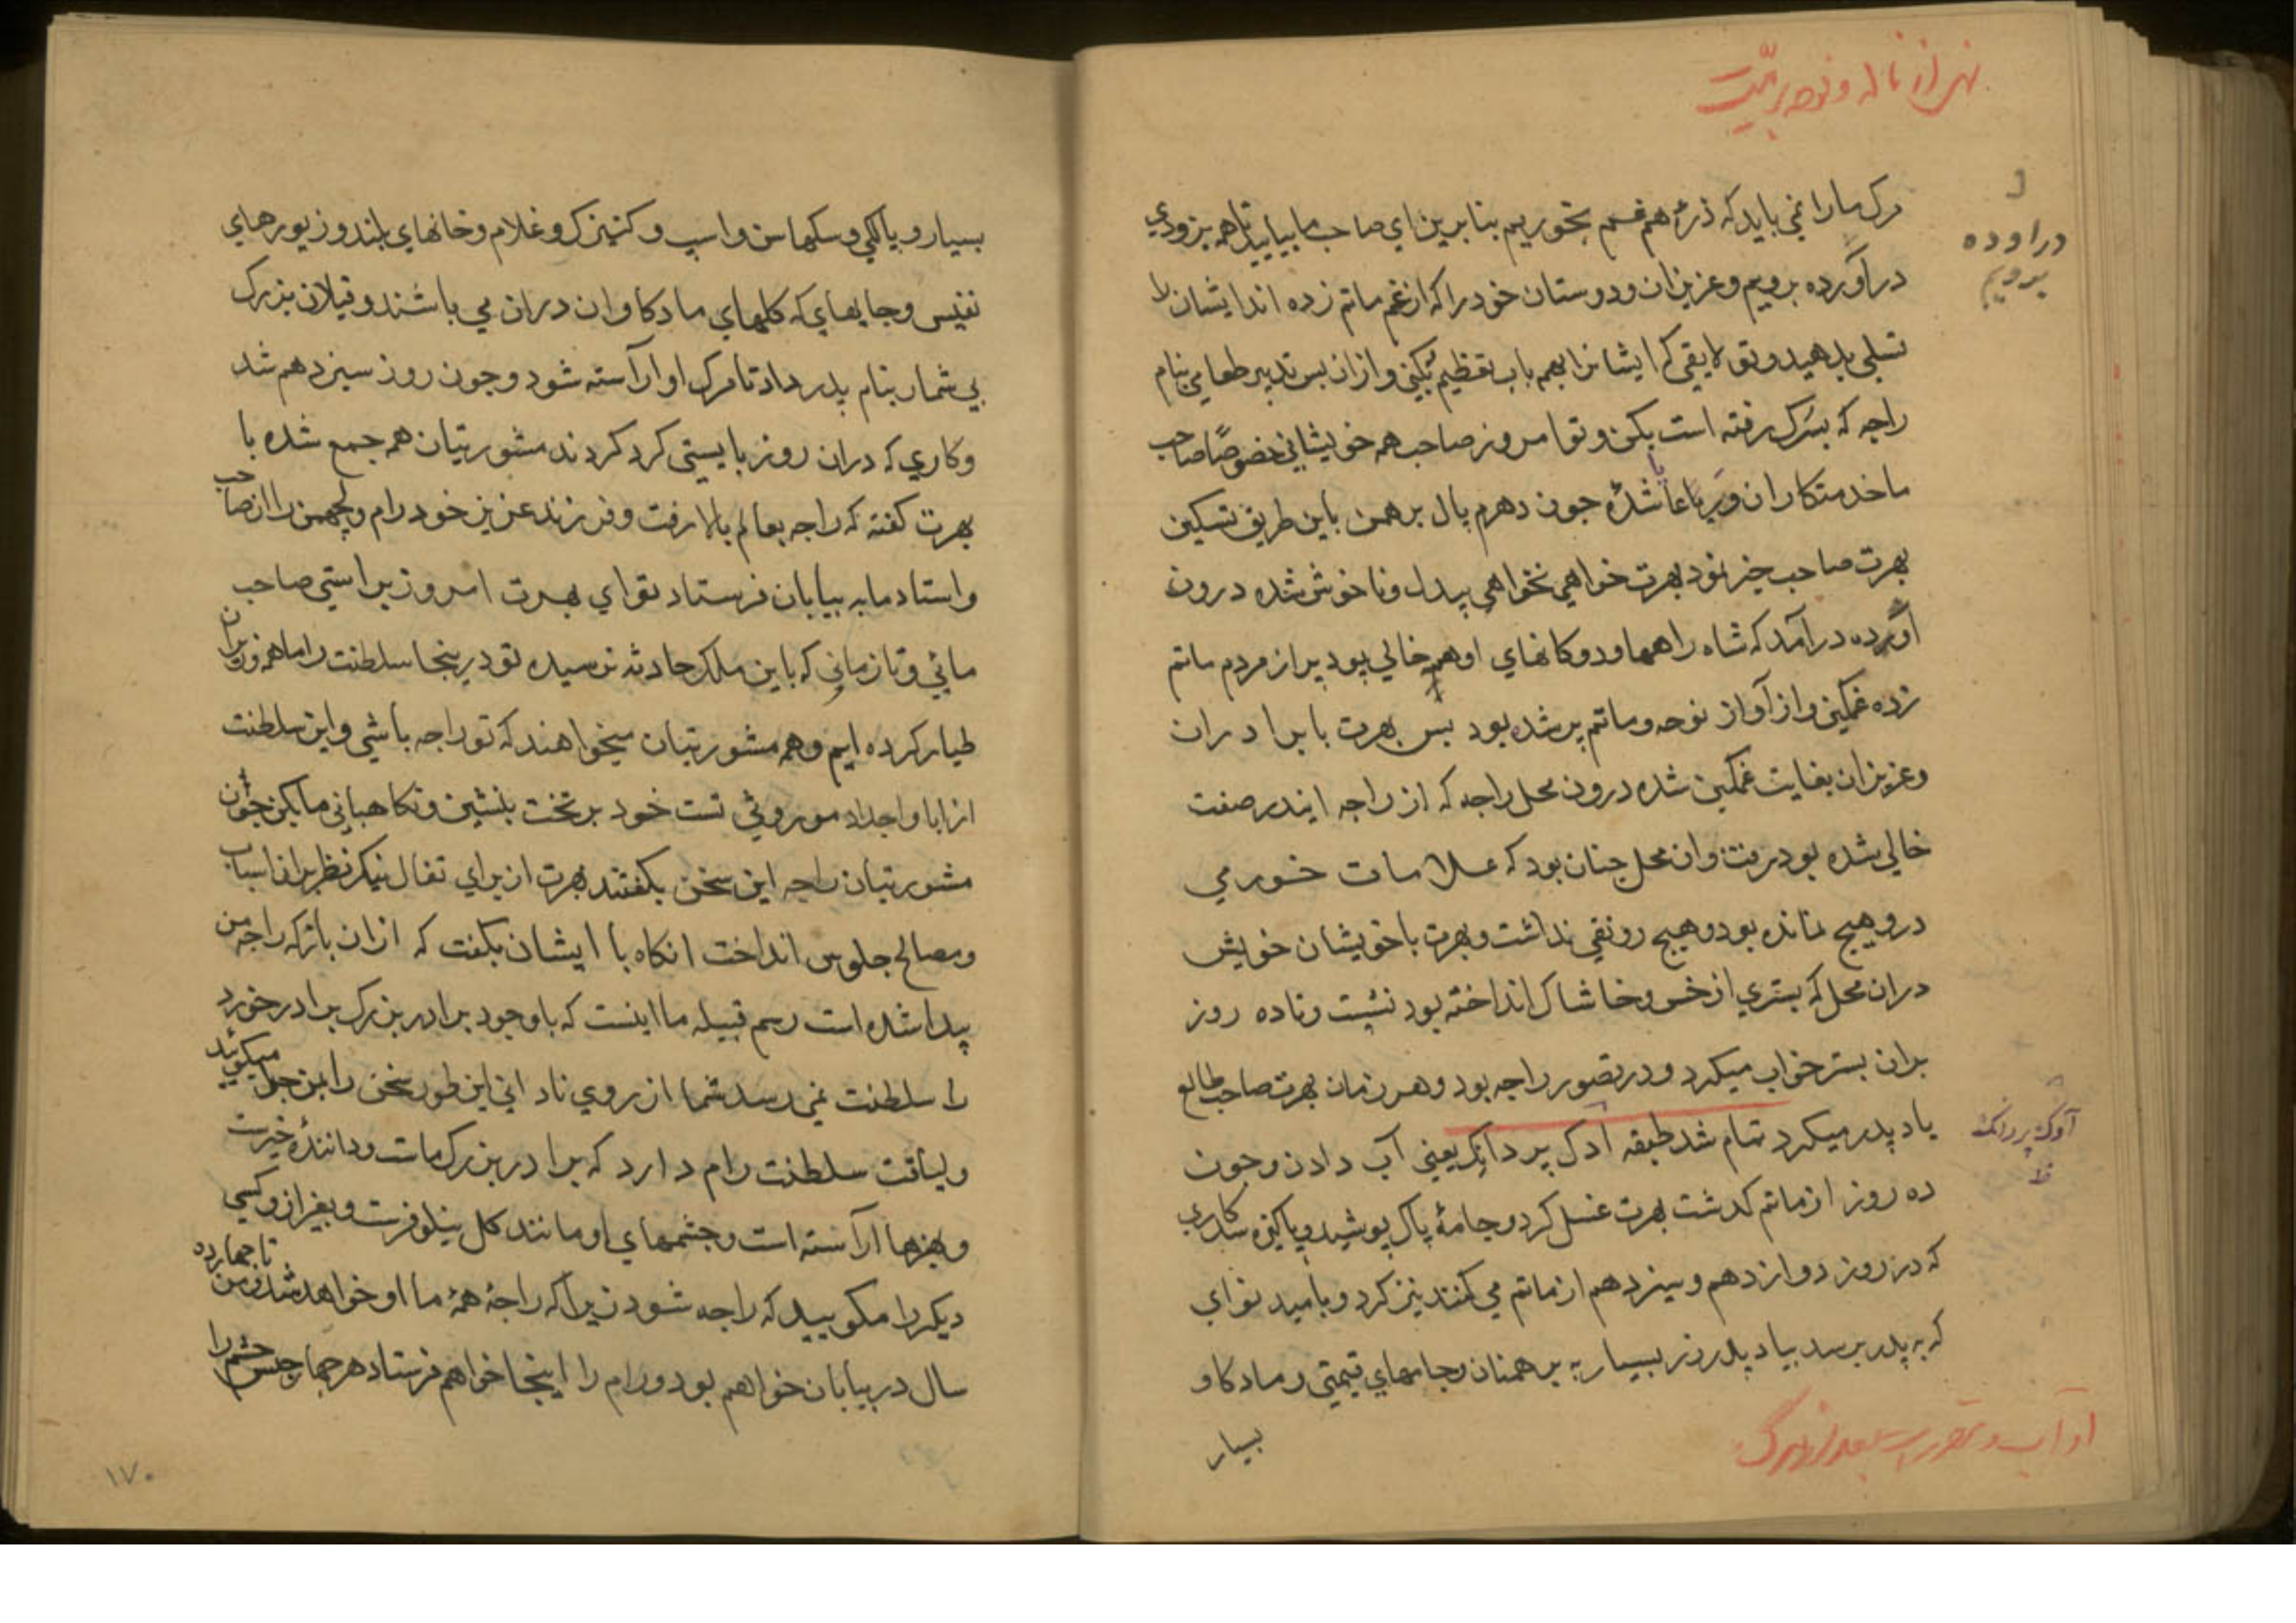 مرک ما را نمی باید که ذرهٔ هم غم بخوریم بنابرین ای صاحب ما بیایید تا همه بزودي
در آورده برویم و عزیزان و دوستان خود را که از غم ماتم زده اند ایشان را
تسلي بدهید و تو لایقي که ایشانرا بهمه باب تعظیم بکني و از ان پس تدبیر طعامي بنام
راجه که بسرک رفته است بکن و تو امروز صاحب همه خویشاني خصوصًا صاحب
ما خدمتکاران و رعایا شدهٔ جون دهرم پال برهمن باین طریق تسکین
بهرت صاحب خبر نمود بهرت خواهي نخواهي بیدل و ناخوش شده درون
اوده در آمد که شاه راهها و دوکانهاي او همه خالي بود پر از مردم ماتم
زده غمکین و از آواز نوحه و ماتم پر شده بود پس بهرت با برادران
و عزیزان بغایت غمکین شده درون محل راجه که از راجه ایندر صفت
خالي شده بود رفت و ان محل جنان بود که علامات خورمي
درو هیچ نمانده بود و هیچ رونقي نداشت و بهرت با خویشان خویش
دران محل که بستري از خس و خاشاک انداخته بود نشست و تا ده روز
بران بستر خواب میکرد و در تصور راجه بود و هر زمان بهرت صاحب طالع
یاد پدر میکرد تمام شد طبقه ادک پر دانک یعني آب دادن و جون
ده روز از ماتم کدشت بهرت غسل کرد و جامهٔ پاک پوشید و پاکیزه شد کاري
که در روز دوازدهم و سیزدهم از ماتم مي کنند نیز کرد و بامید ثواي
که به پدر برسد بیاد پدر زر بسیار به برهمنان و جامهاي قیمتي و ماد کاو
بسیار
در اوده
برویم
آوک پردانک
ظ
بسیار و پالکي و سکهاسن و اسپ و کنیزک و غلام و خانهاي بلند و زیورهاي
نفیس و جایهاي که کلهاي ماد کاوان دران مي باشند و فیلان بزرک
بي شمار بنام پدر داد تا مرک او آراسته شود و جون روز سیزدهم شد
و کاري که دران روز بایستي کرد کردند مشورتیان همه جمع شده با
بهرت کفته که راجه بعالم بالا رفت و فرزند عزیز خود رام و لچهمن را از صاحب
و استاد ما به بیابان فرستاد تو اي بهرت امروز براستي صاحب
مائي و تا زماني که باین ملک حادثه نرسیده تو درینجا سلطنت را ما همه وزیران
طیار کرده ایم و همه مشورتیان میخواهند که تو راجه باشي و این سلطنت
از ابا و اجداد موروثي تست خود بر تخت بنشین و نکاهباني ما بکن جون
مشورتیان راجه این سخن بکفتند بهرت از براي تفال نیک نظر بران اسباب
و مصالح جلوس انداخت انکاه با ایشان بکفت که ازان باز که راجه من
پیدا شده است رسم قبیله ما اینست که باوجود برادر بزرک برادر خورد
را سلطنت نمي رسد شما از روي ناداني این طور سخن را بمن جرا میکوئید
و لیاقت سلطنت رام دارد که برادر بزرک مات و دانندهٔ خیرت
و هنرها آراسته است و جشمهاي او مانند کل نیلوفرت و بغیر ازو کسي
دیکر را مکویید که راجه شود زیرا که راجهٔ همهٔ ما او خواهد شد و من تا جهارده
سال در بیابان خواهم بود و رام را اینجا خواهم فرستاد هر جهار جنس حشم را
۱۷۰